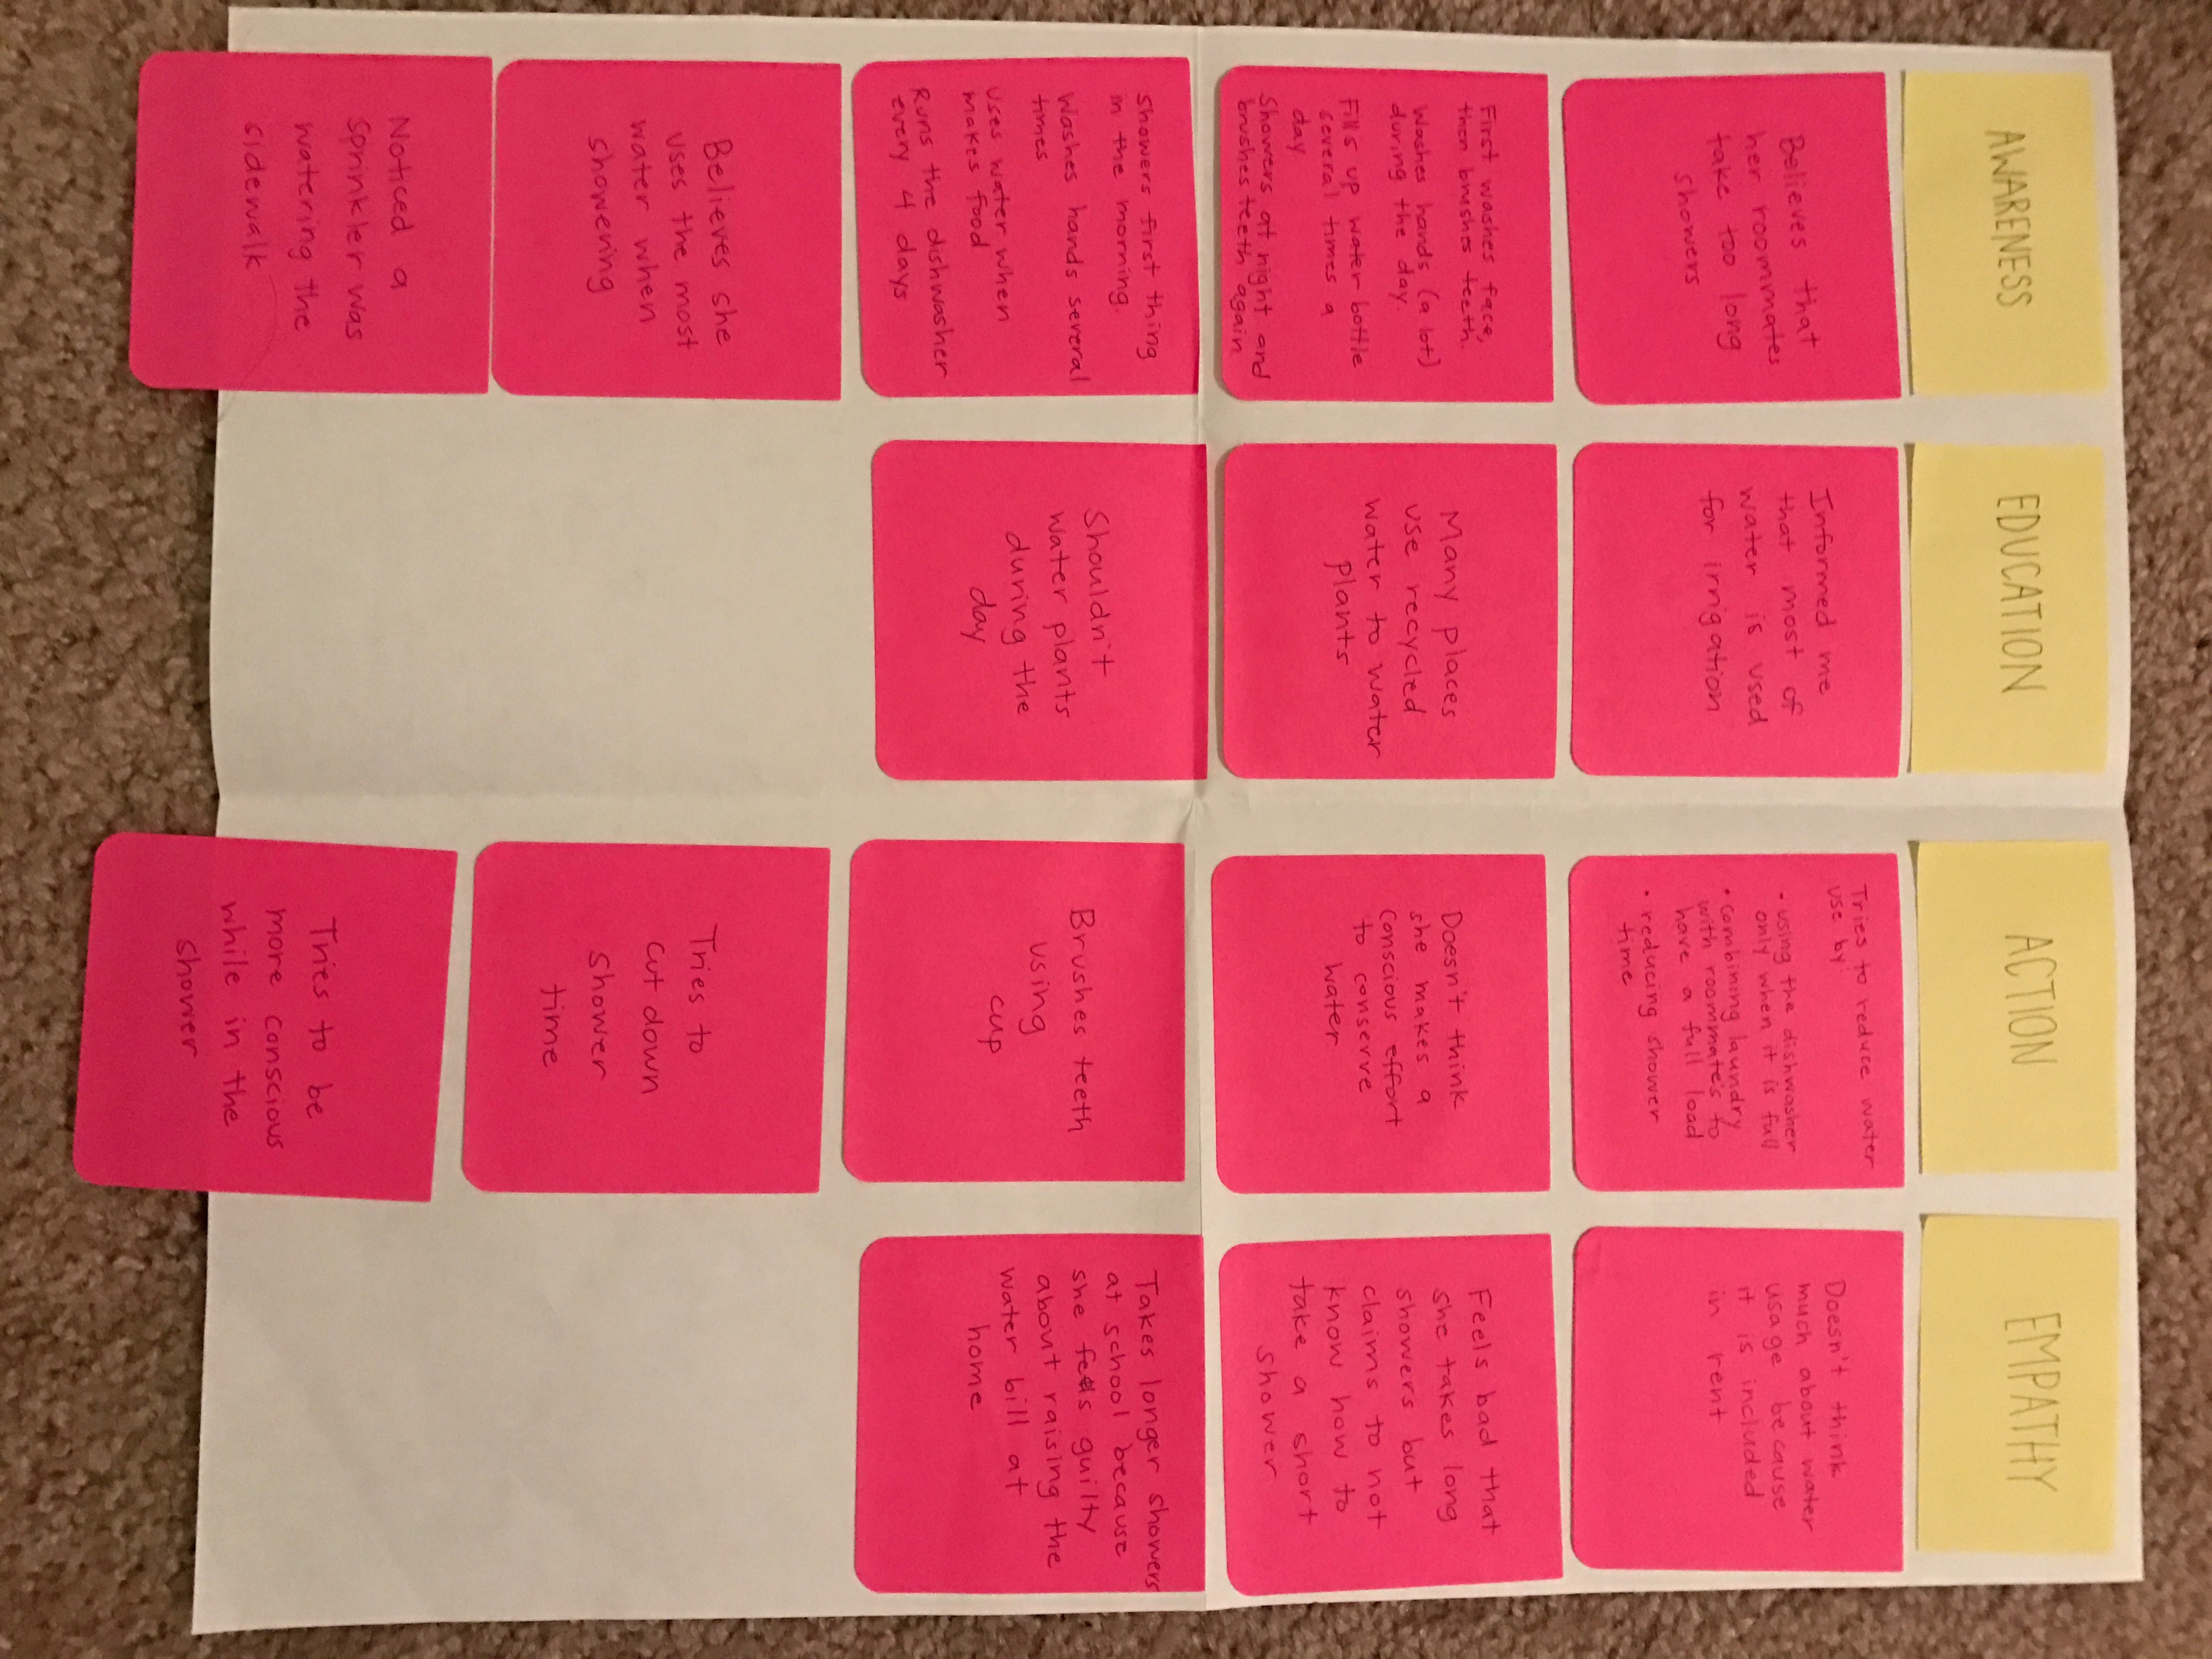 AWARENESS
Believes that
her roommates
take too long
showers
First washes face,
then brushes teeth.
Washes hands (a lot)
during the day.
Fills up water bottle
several times a
day
Showers at night and
brushes teeth again
Showers first thing
in the morning.
Washes hands several
times
Uses water when
makes food
Runs the dishwasher
every 4 days
Believes she
uses the most
water when
showering
Noticed a
sprinkler was
watering the
sidewalk
EDUCATION
Informed me
that most of
water is used
for irrigation
Many places
use recycled
water to water
plants
Shouldn't
water plants
during the
day
ACTION
Tries to reduce water
use by:
• using the dishwasher
only when it is full
• combining laundry
with roommate's to
have a full load
• reducing shower
time
Doesn't think
she makes a
conscious effort
to conserve
water
Brushes teeth
using
cup
Tries to
cut down
shower
time
Tries to be
more conscious
while in the
shower
EMPATHY
Doesn't think
much about water
usage because
it is included
in rent
Feels bad that
she takes long
showers but
claims to not
know how to
take a short
shower
Takes longer showers
at school because
she feels guilty
about raising the
water bill at
home